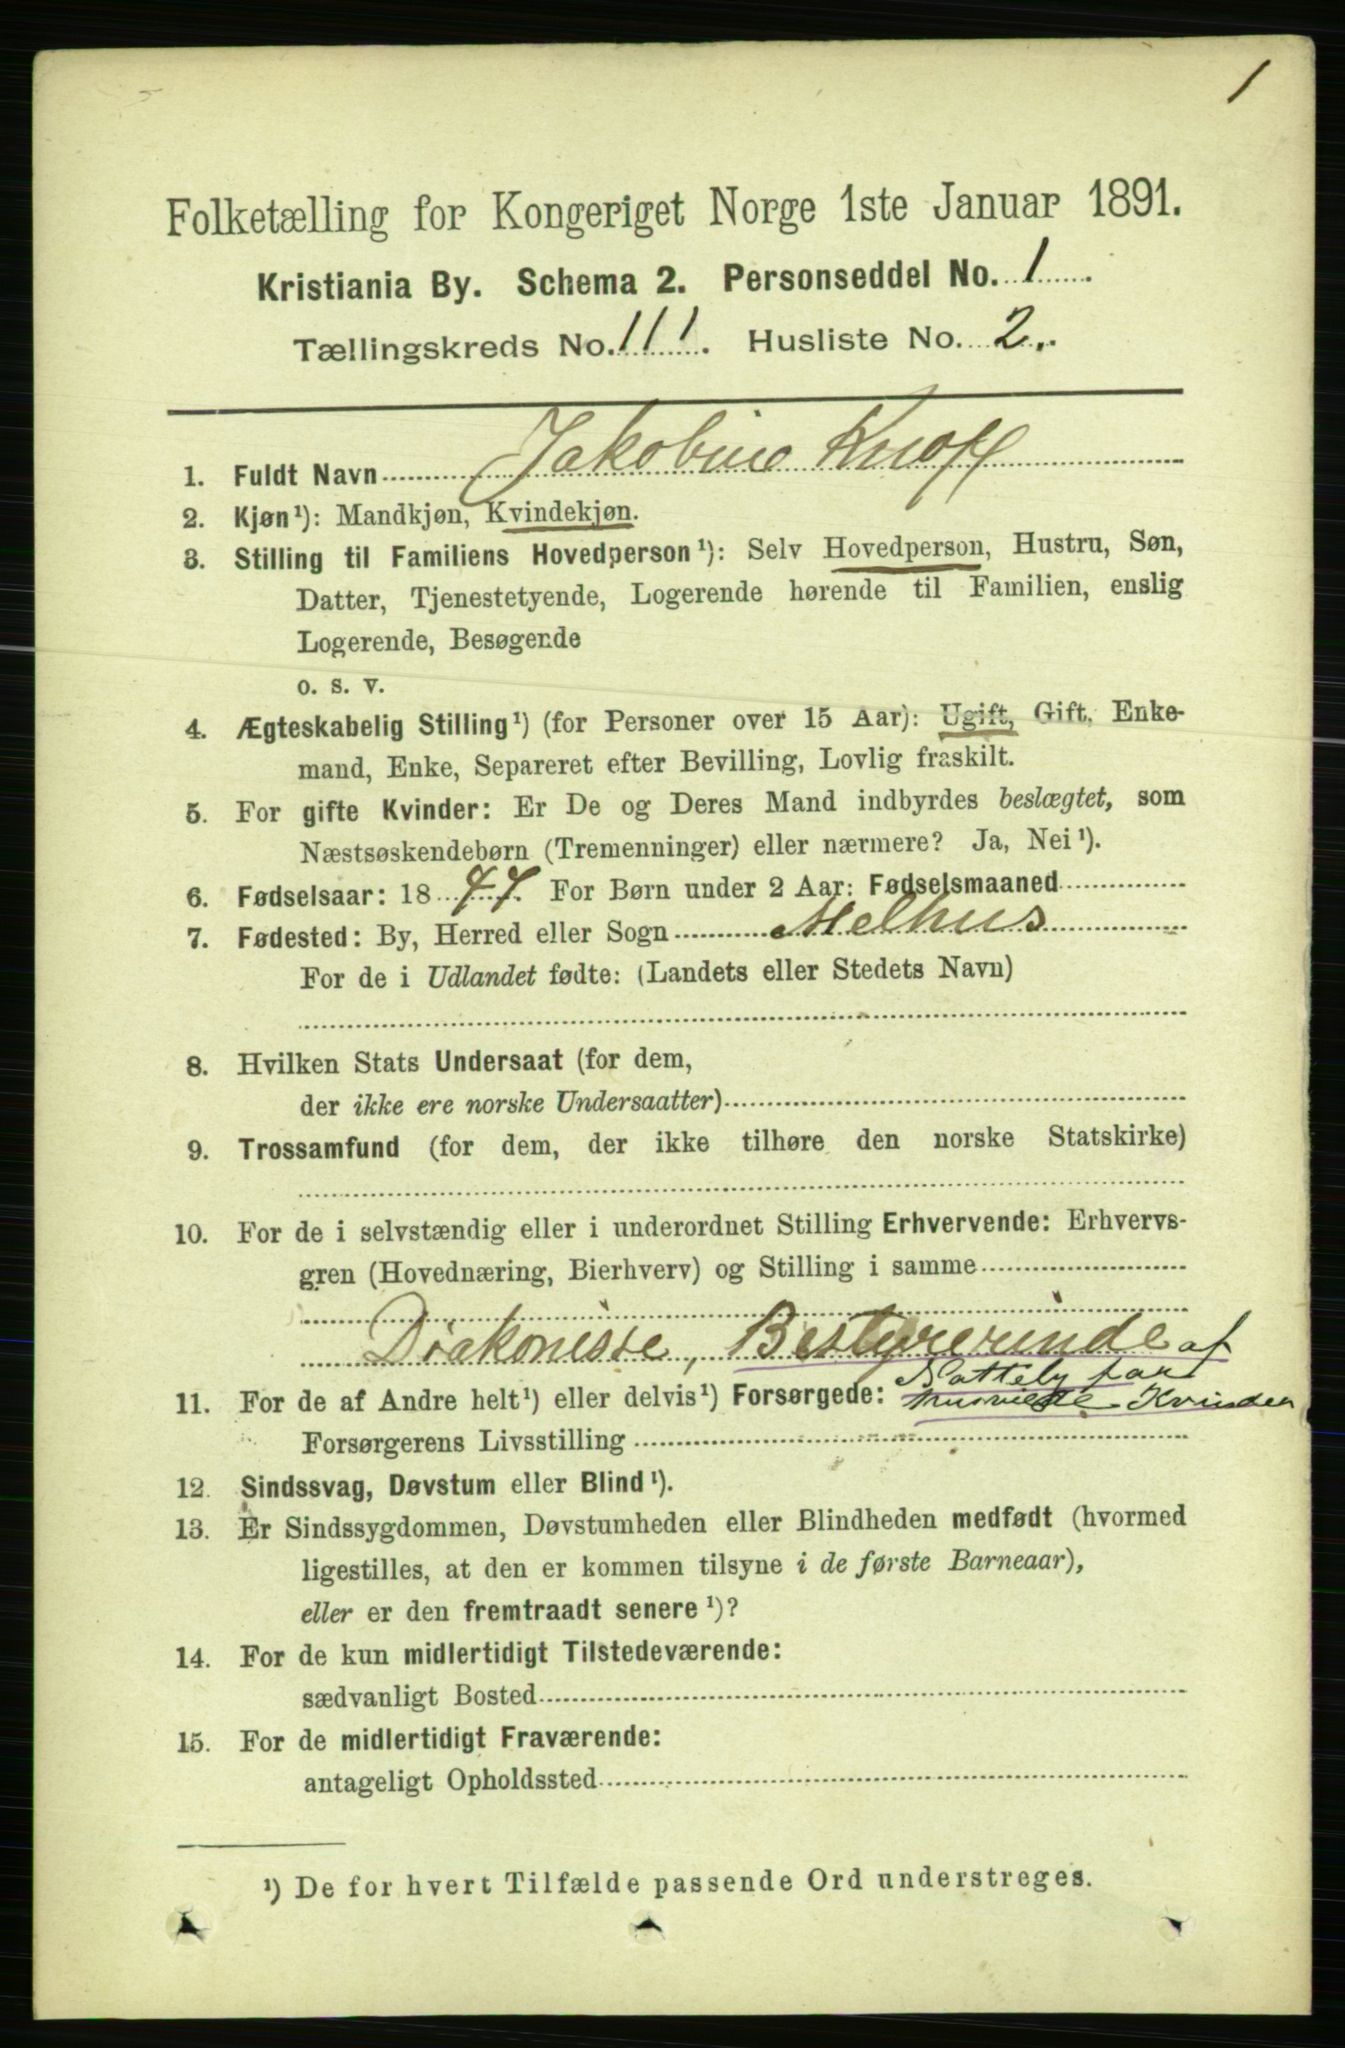 1
Folketælling for Kongeriget Norge 1ste Januar 1891.
Kristiania By. Schema 2. Personseddel No. 1.
Tællingskreds No. 111. Husliste No. 2.
1. Fuldt Navn Jakobine Knoff
2. Kjøn¹): Mandkjøn, Kvindekjøn.
3. Stilling til Familiens Hovedperson¹): Selv Hovedperson, Hustru, Søn,
Datter, Tjenestetyende, Logerende hørende til Familien, enslig
Logerende, Besøgende
o. s. v.
4. Ægteskabelig Stilling¹) (for Personer over 15 Aar): Ugift, Gift, Enke-
mand, Enke, Separeret efter Bevilling, Lovlig fraskilt.
5. For gifte Kvinder: Er De og Deres Mand indbyrdes beslægtet, som
Næstsøskendebørn (Tremenninger) eller nærmere? Ja, Nei¹).
6. Fødselsaar: 18 47. For Børn under 2 Aar: Fødselsmaaned
7. Fødested: By, Herred eller Sogn Melhus
For de i Udlandet fødte: (Landets eller Stedets Navn)
8. Hvilken Stats Undersaat (for dem,
der ikke ere norske Undersaatter)
9. Trossamfund (for dem, der ikke tilhøre den norske Statskirke)
10. For de i selvstændig eller i underordnet Stilling Erhvervende: Erhvervs-
gren (Hovednæring, Bierhverv) og Stilling i samme
Diakonisse, Bestyrerinde af
Natteby for
11. For de af Andre helt¹) eller delvis¹) Forsørgede: husvilde Kvinder
Forsørgerens Livsstilling
12. Sindssvag, Døvstum eller Blind¹).
13. Er Sindssygdommen, Døvstumheden eller Blindheden medfødt (hvormed
ligestilles, at den er kommen tilsyne i de første Barneaar),
eller er den fremtraadt senere¹)?
14. For de kun midlertidigt Tilstedeværende:
sædvanligt Bosted
15. For de midlertidigt Fraværende:
antageligt Opholdssted
¹) De for hvert Tilfælde passende Ord understreges.